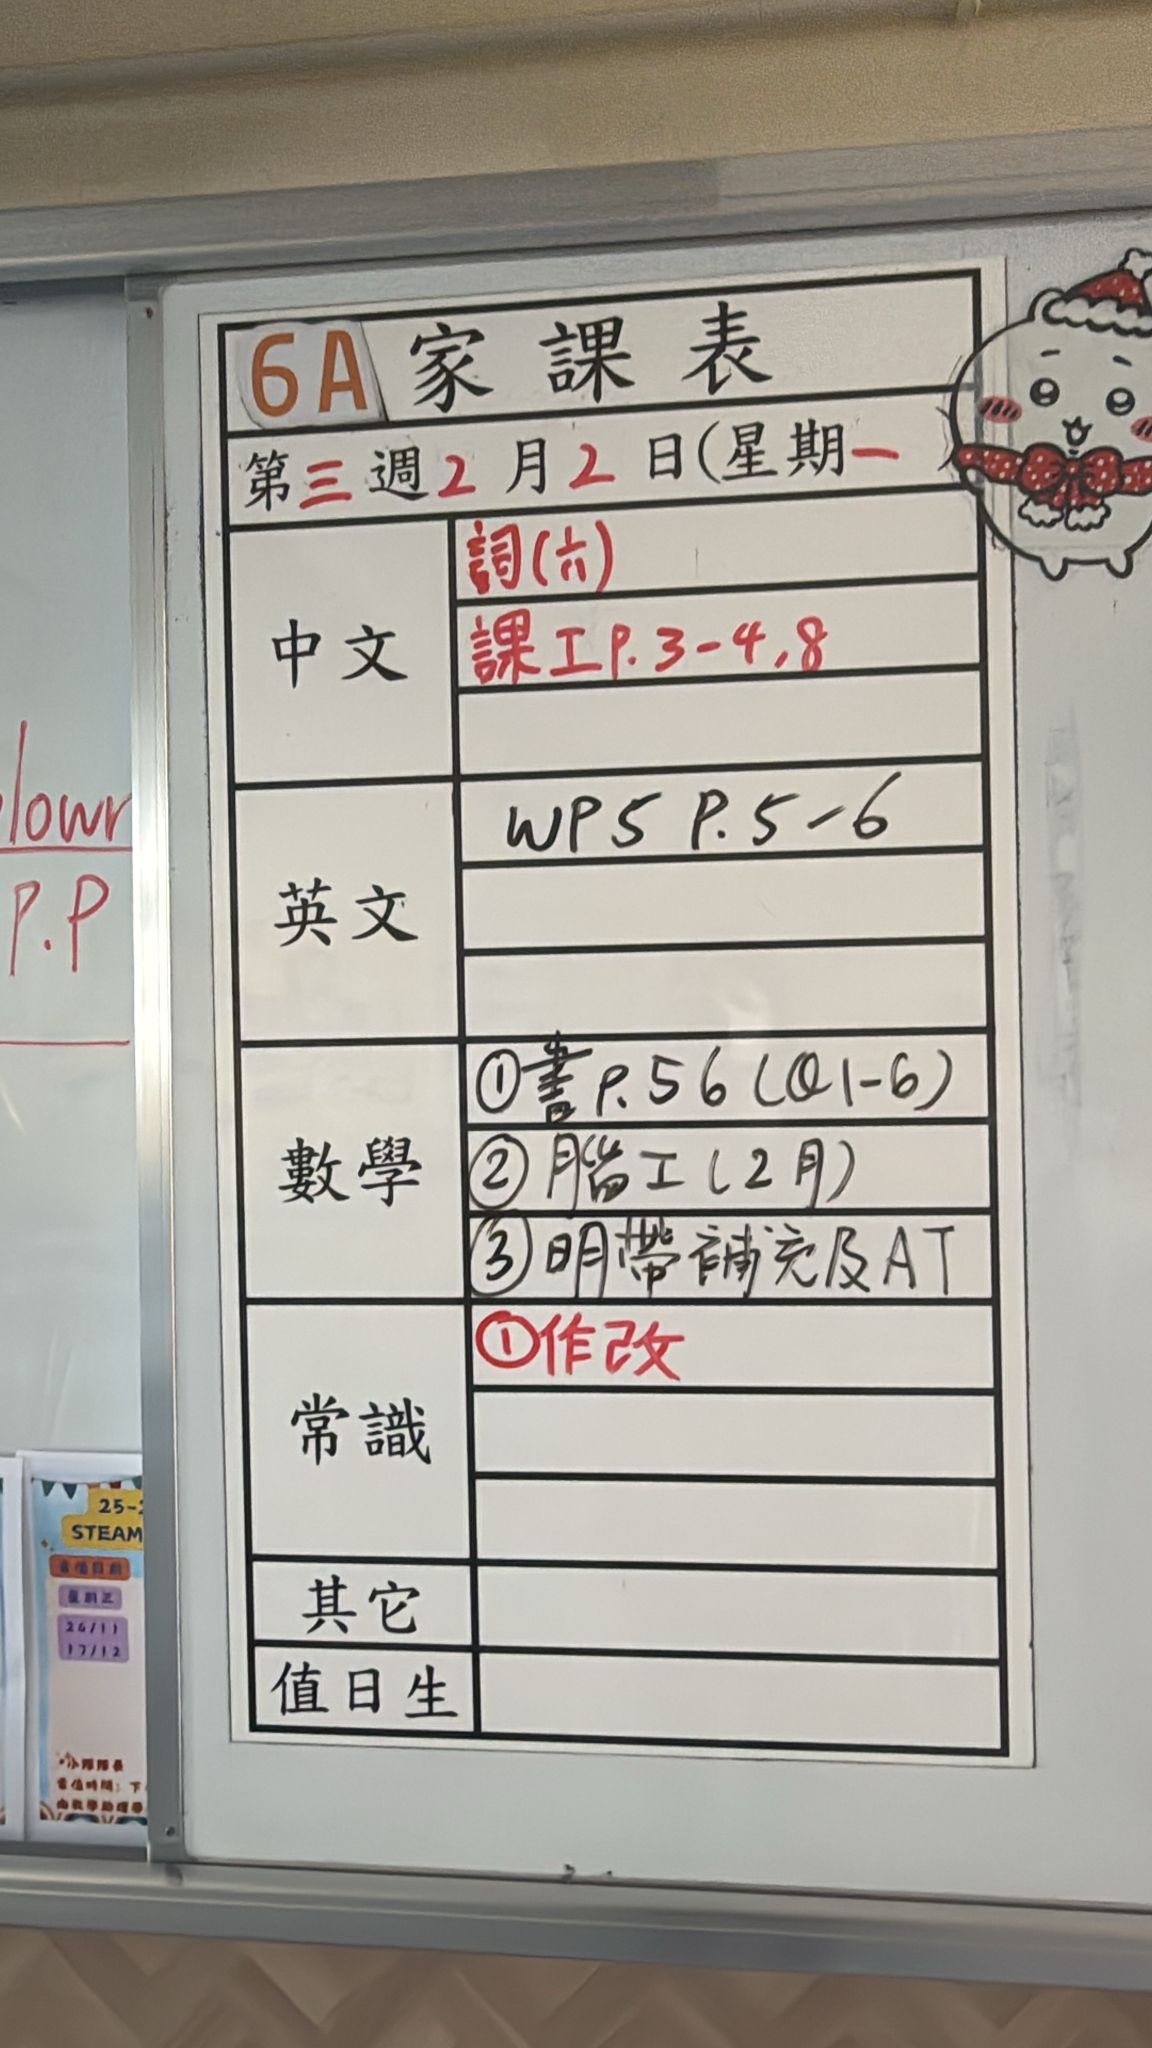 6A 家課表
第三週2月2日(星期一)
中文
詞(六)
課工P.3-4,8
英文
WP5 P.5-6
數學
①書P.56(Q1-6)
②腦工(2月)
③明帶補充及AT
常識
①作改
其它
值日生
lowr
P.P
25-2
STEAM
當值日期
星期三
26/11
17/12
小隊隊長
當值時間:下